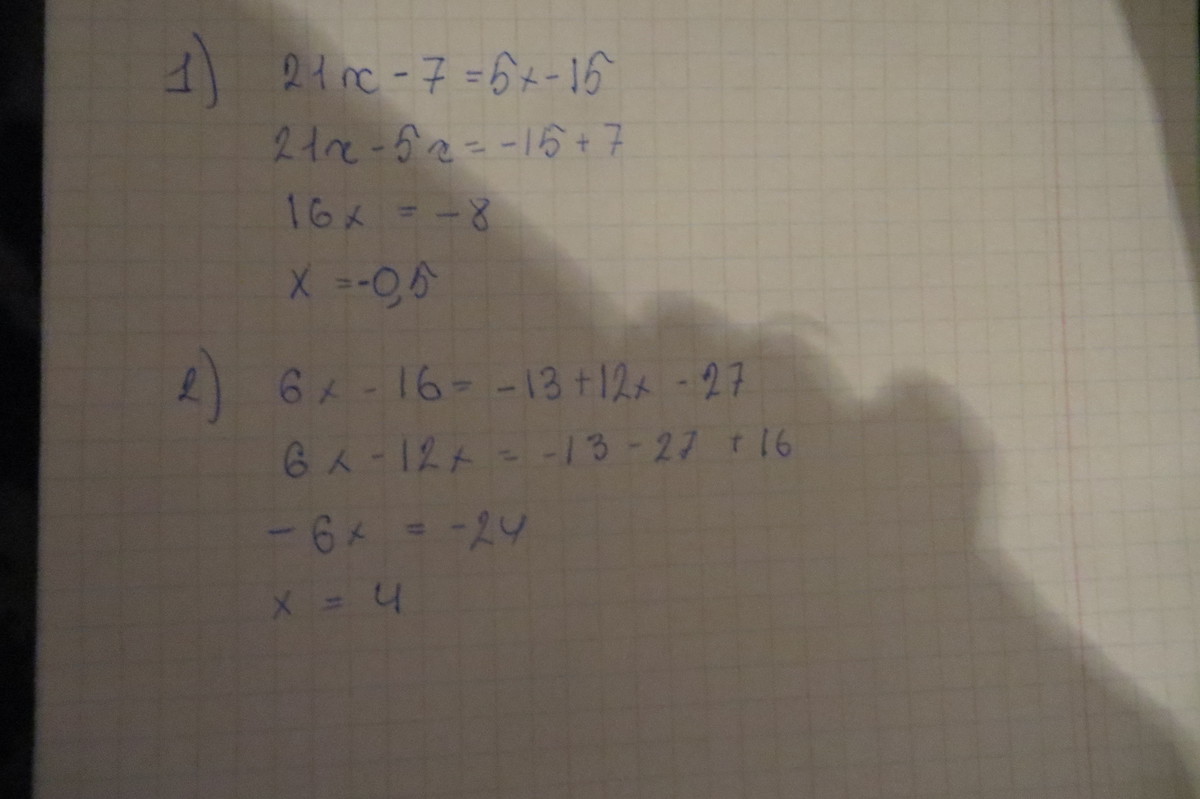 1) 21x - 7 = 5x - 15
21x - 5x = -15 + 7
16x = -8
x = -0,5
2) 6x - 16 = -13 + 12x - 27
6x - 12x = -13 - 27 + 16
-6x = -24
x = 4